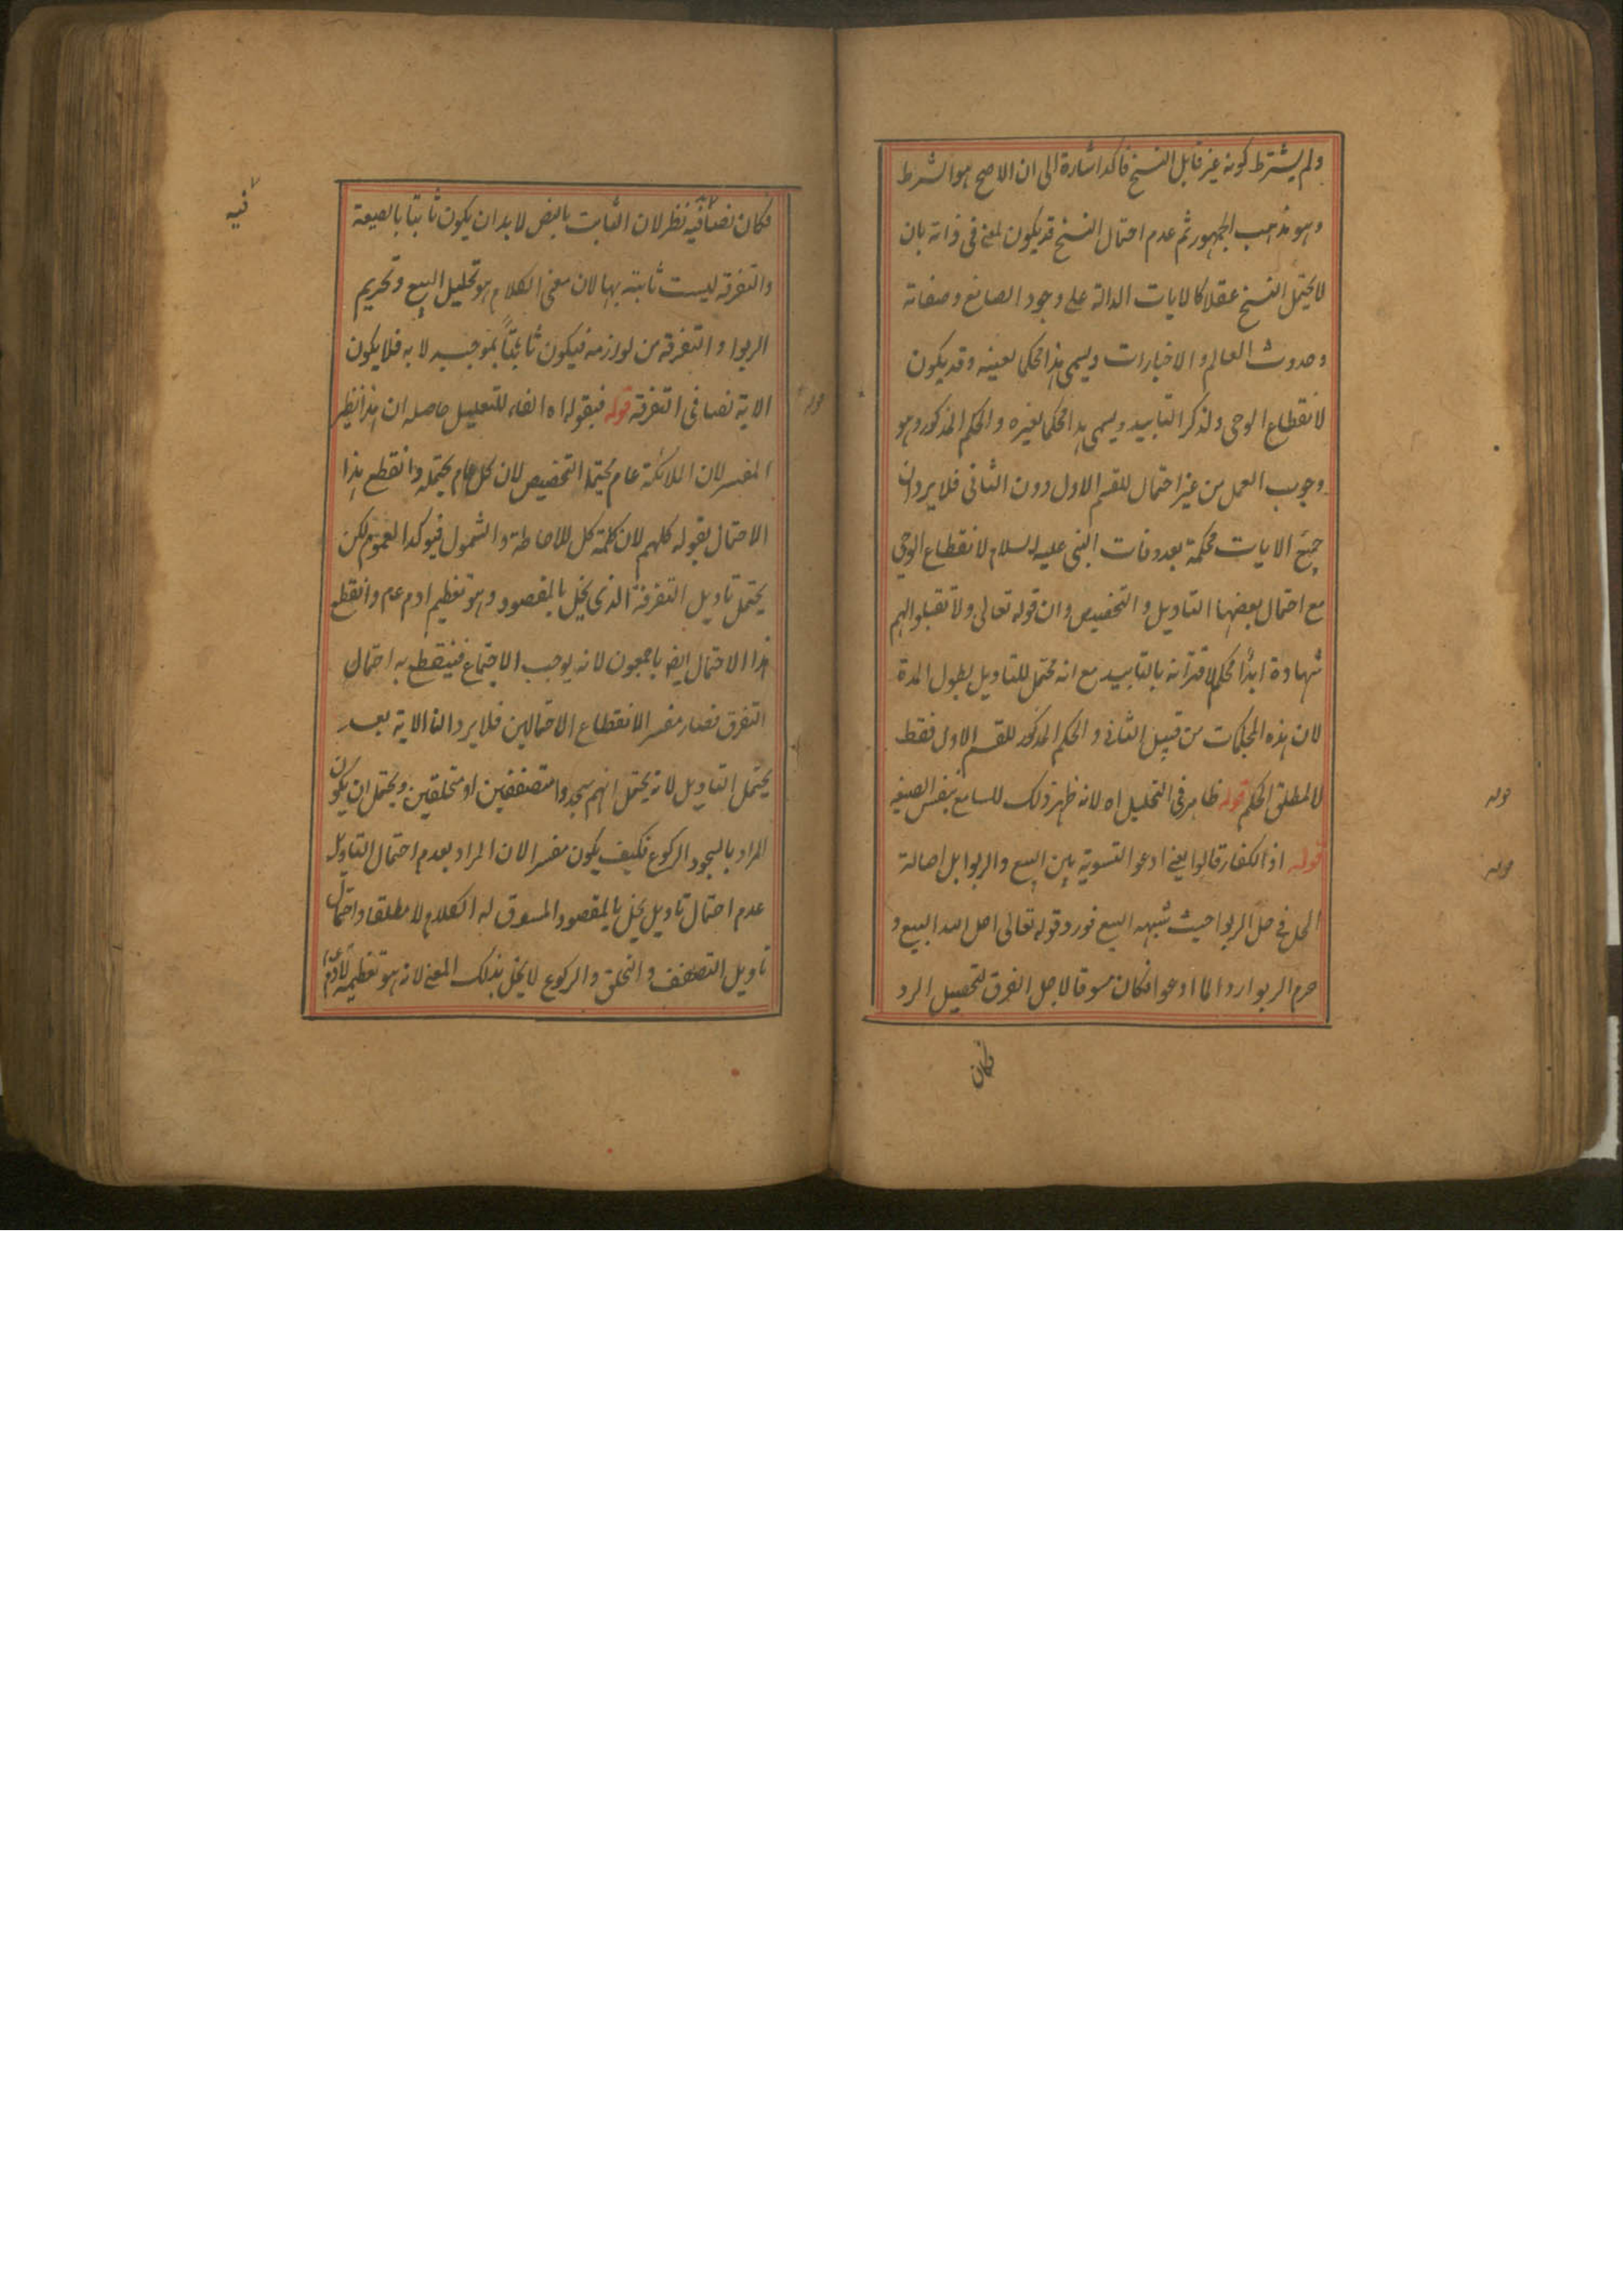 ولم يشترط كونه غير قابل النسخ فاكد اشارة الى ان الاصح هو الشرط
وهو مذهب الجمهور ثم عدم احتمال النسخ قد يكون لمعنى فى ذاته بان
لا يحتمل النسخ عقلا كالايات الدالة على وجود الصانع وصفاته
وحدوث العالم والاخبارات ويسمى هذا محكما لعينه وقد يكون
لانقطاع الوحى ولذكر التابيد ويسمى هذا محكما لغيره والحكم المذكور وهو
وجوب العمل من غير احتمال للقسم الاول دون الثانى فلا يرد ان
جميع الايات محكمة بعد وفات النبى عليه السلام لانقطاع الوحى
مع احتمال بعضها التاويل والتخصيص وان قوله تعالى ولا تقبلوا لهم
شهادة ابدًا محكم لاقترانه بالتابيد مع انه محتمل للتاويل بطول المدة
لان هذه المحكمات من قبيل الثانى والحكم المذكور للقسم الاول فقط
لا لمطلق الحكم قوله ظاهر فى التحليل اه لانه ظهر ذلك للسامع بنفس الصيغه
قوله
قوله اذ الكفار قالوا يعنى ادعوا التسوية بين البيع والربوا بل اصالة
قوله
الحل فى حل الربوا حيث شبهه البيع فورد قوله تعالى احل الله البيع و
حرم الربوا ردا لما ادعوا فكان مسوقا لاجل الفرق لتحصيل الرد
فكان
فكان نصا فيه نظر لان الثابت بالنص لا بد ان يكون ثابتا بالصيغة
فيه
والتفرقه ليست ثابته بها لان معنى الكلام هو تحليل البيع وتحريم
الربوا والتفرقه من لوازمه فيكون ثابتًا بموجبه لا به فلا يكون
الاية نصا فى التفرقه قوله فبقوله اه الفاء للتعليل حاصله ان هذا نظير
قوله
المفسر لان الملائكة عام يحتمل التخصيص لان كل عام يحتمله وانقطع هذا
الاحتمال بقوله كلهم لان كلمة كل للاحاطة والشمول فيوكد العموم لكن
يحتمل تاويل التفرقة الذى يخل بالمقصود وهو تعظيم ادم عم وانقطع
هذا الاحتمال ايضا باجمعون لانه يوجب الاجتماع فينقطع به احتمال
التفرق فصار مفسرا لانقطاع الاحتمالين فلا يرد الاية بعد
يحتمل التاويل لانه يحتمل انهم سجدوا متصففين او متحلقين ويحتمل ان يكون
المراد بالسجود الركوع فكيف يكون مفسرا لان المراد بعدم احتمال التاويل
عدم احتمال تاويل يخل بالمقصود المسوق له الكلام لا مطلقا واحتمال
تاويل التصفف والتحلق والركوع لا يخل بذلك المعنى لانه هو تعظيمه لآدم عم